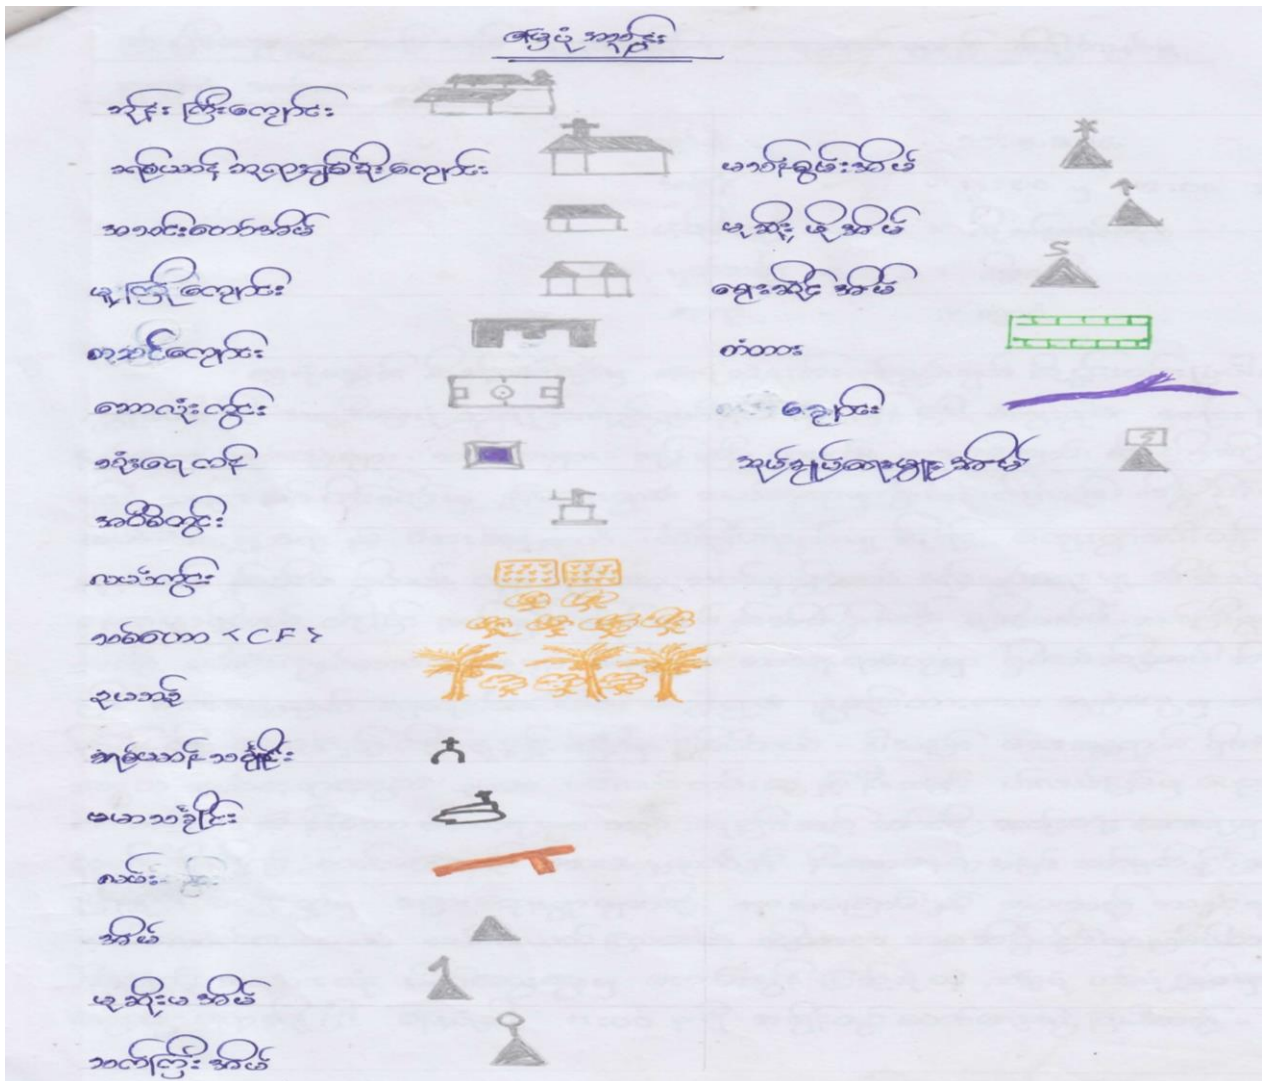 မြေပုံ အညွှန်း
ဘုန်းကြီးကျောင်း
ခရစ်ယာန် ဘုရားရှစ်ခိုးကျောင်း
အသင်းတော်အိမ်
မူကြိုကျောင်း
စာသင်ကျောင်း
ဘောလုံးကွင်း
သုံးရေကန်
အဝီစိတွင်း
လယ်ကွင်း
သစ်တော < CF >
ဥယာဉ်
ခရစ်ယာန် သင်္ချိုင်း
ဗမာသင်္ချိုင်း
လမ်း
အိမ်
မုဆိုးမ အိမ်
သက်ကြီးအိမ်
မသန်စွမ်းအိမ်
မုဆိုးဖိုအိမ်
ဈေးဆိုင် အိမ်
တံတား
ချောင်း
အုပ်ချုပ်ရေးမှူး အိမ်